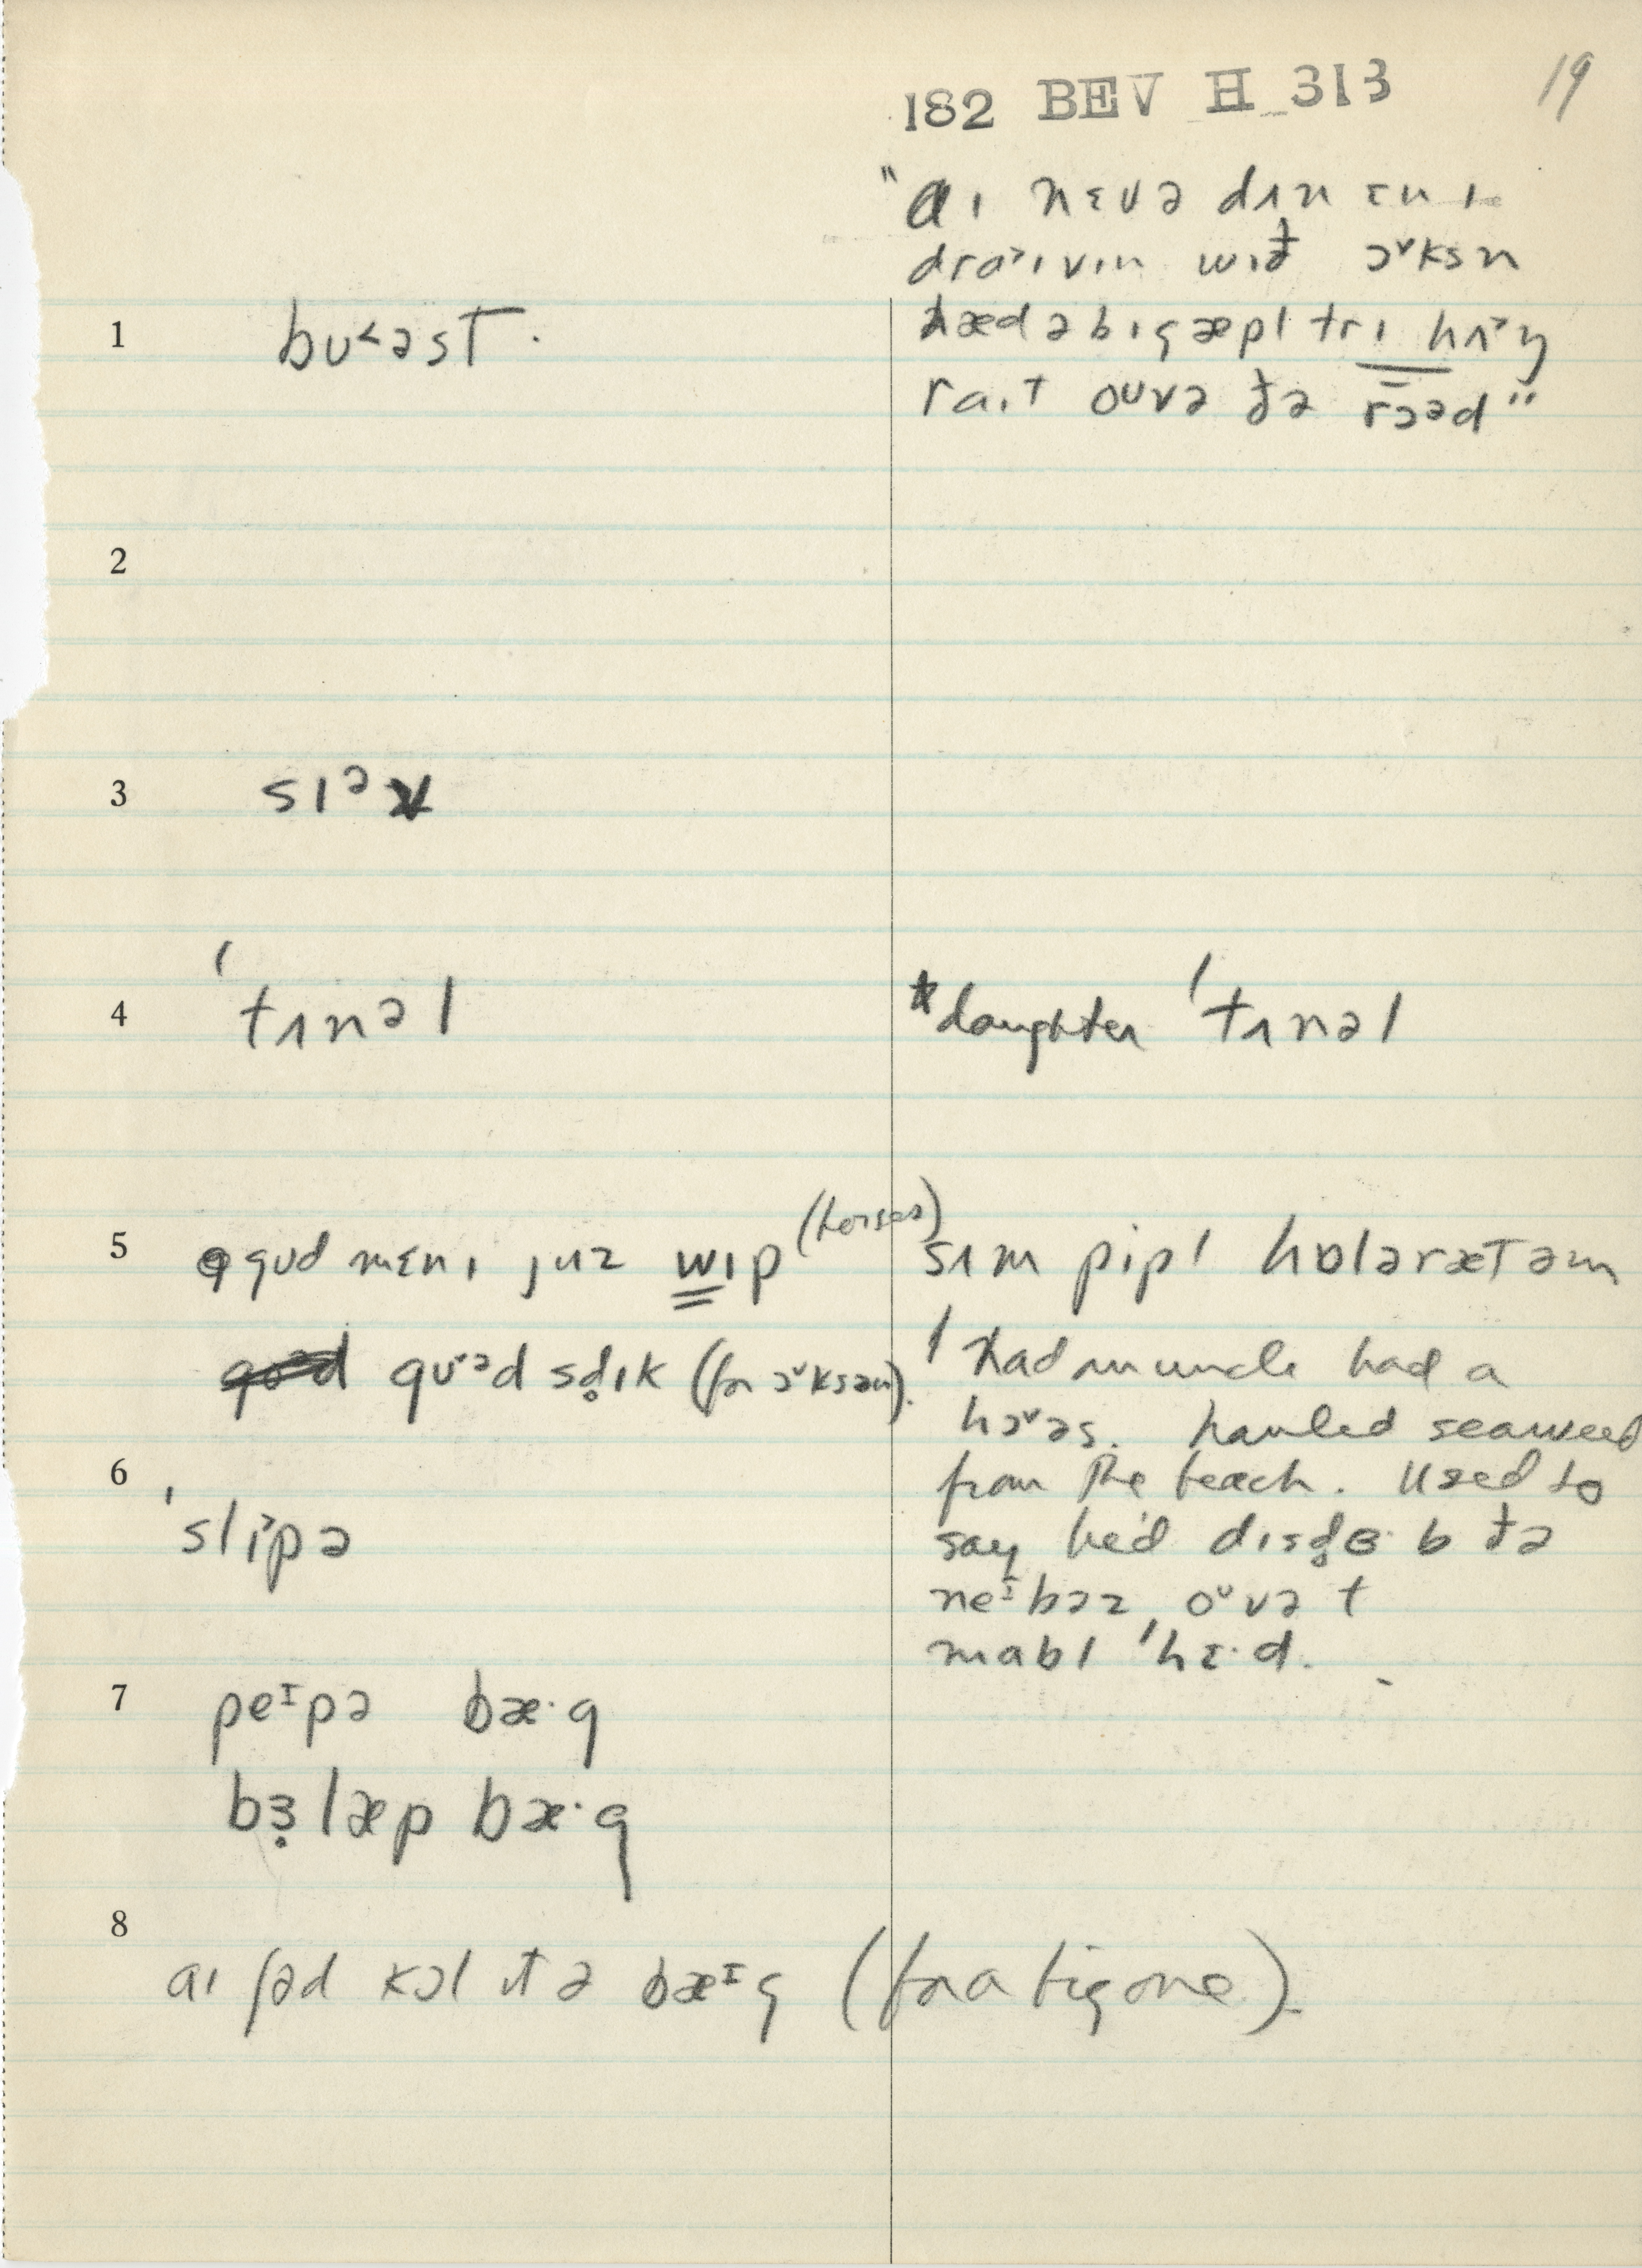 182 BEV H 313
19
"aɪ nɛvə dʌn ɛnɪ
draˑɪvɪn wɪđ ɔˇksn
hæd ə bɪg æpl trɪ hʌˑŋ
raɪt oᵘvə đə rɔəd"
1 bʊ˂əst.
2
3 slᵊ
4 ˈtʌnəl
*daughter ˈtʌnəl
5 gʊd mɛnɪ juz wɪp (horses)
gʊˑəd sd̥ɪk (for ɔˇksən).
sʌm pipl hɒləræt əm
had an uncle had a
hɔˇəs. hauled seaweed
from the beach. Used to
say he'd dɪsd̥ɜˑb đə
neᶦbəz oᵘvə t
mabl ˈhɛˑd.
6 ˈsliˑpə
7 peᶦpə bæˑg
bɜ̣læp bæˑg
8 aɪ ʃəd kɔl ɪt ə bæᶦg (for a big one).